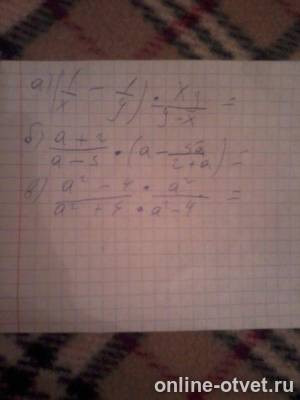 а) (1/x - 1/y) · xy/(y-x) =
б) (a+2)/(a-3) · (a - 5a/(2+a)) =
в) (a² - 4)/(a² + 4) · a²/(a² - 4) =
online-otvet.ru